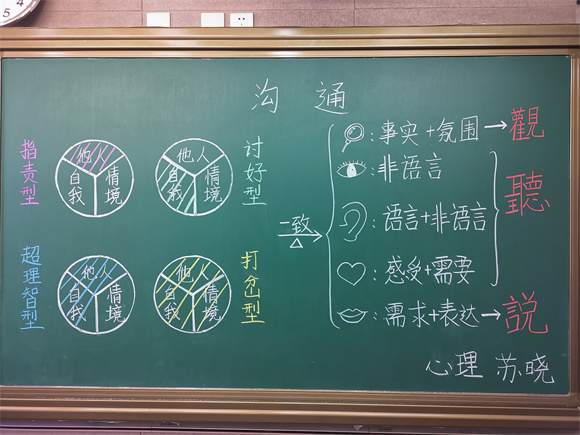 5
4
沟 通
指责型
他人
自我
情境
讨好型
他人
自我
情境
超理智型
他人
自我
情境
打岔型
他人
自我
情境
一致
:事实+氛围→觀
:非语言
:语言+非语言
:感受+需要
聽
:需求+表达→説
心理 苏晓